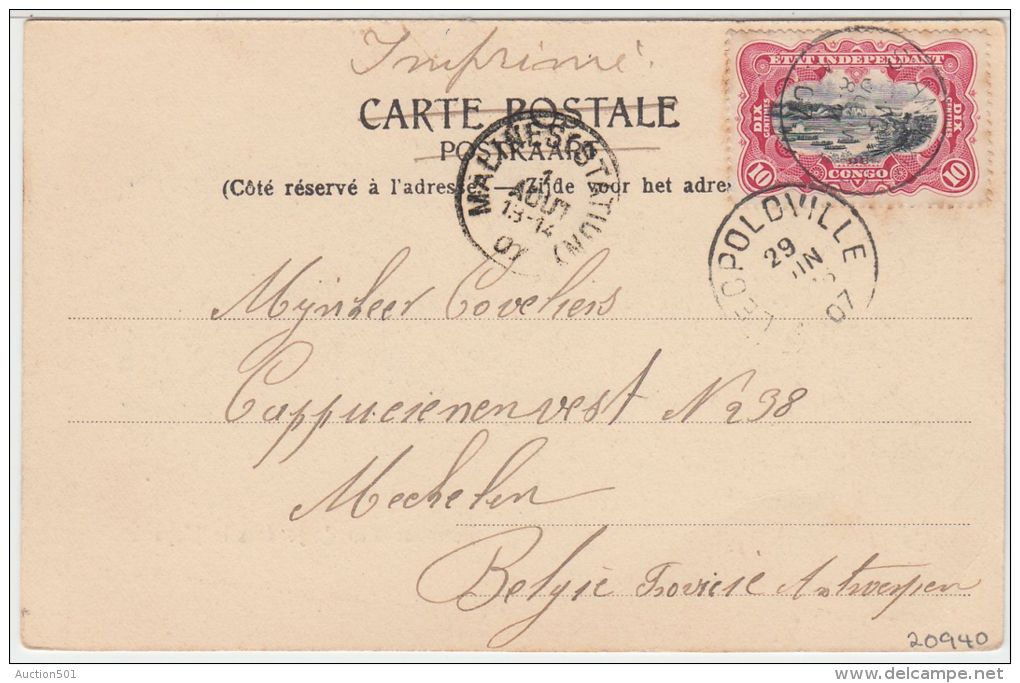 Imprimé.
ETAT INDEPENDANT
DIX CENTIMES
DIX CENTIMES
10 CONGO 10
CARTE POSTALE
POSTKAART
(Côté réservé à l'adresse. — Zijde voor het adre
MALINES (STATION)
1
AOUT
13-14
07
LEOPOLDVILLE
29
JUIN
07
Mijnheer Coveliers
Cappucienenvest No 238
Mechelen
België Provicie Antwerpen
20940
Auction501
delcampe.net